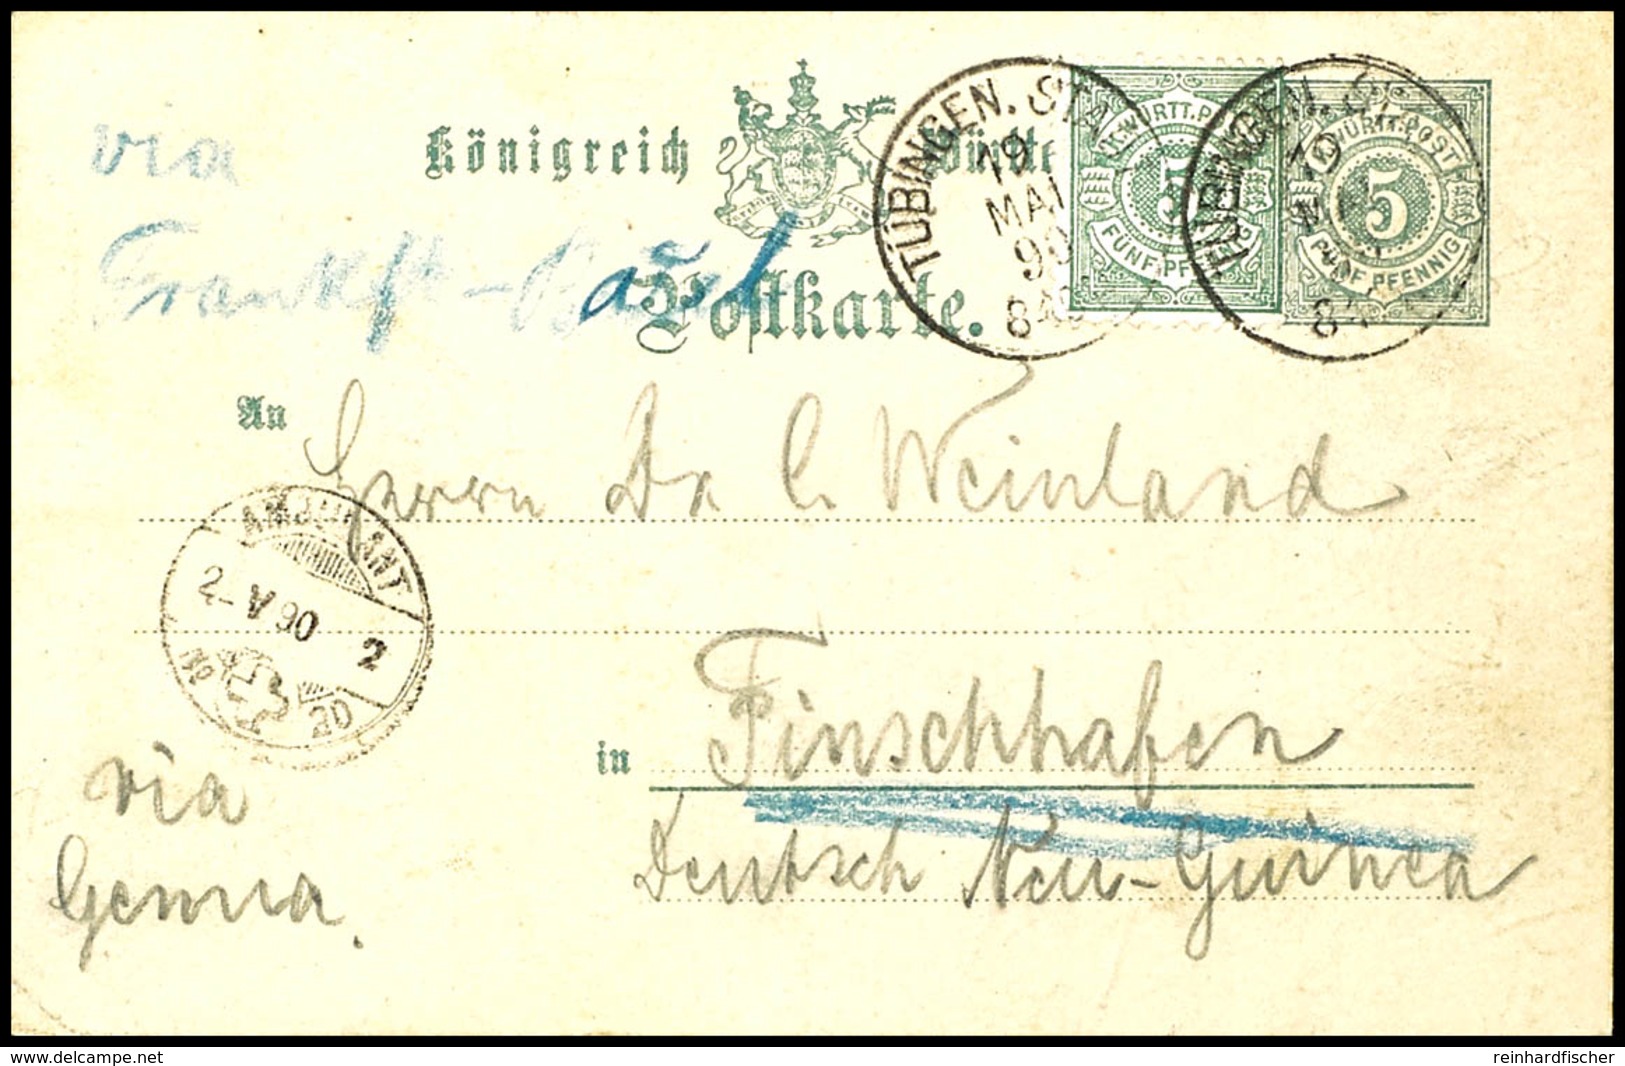 via
Frankft-Basel
Königreich
Postkarte.
TÜBINGEN. STA
19
MAI
90
K. WÜRTT. POST
5
FÜNF PFENNIG
TÜBINGEN. ST
19
WÜRTT. POST
5
FÜNF PFENNIG
An Herrn Dr C. Weinland
AMBULANT
V 90 2
No 20
in Finschhafen
Deutsch Neu-Guinea
via
Genua.
www.delcampe.net
reinhardfischer